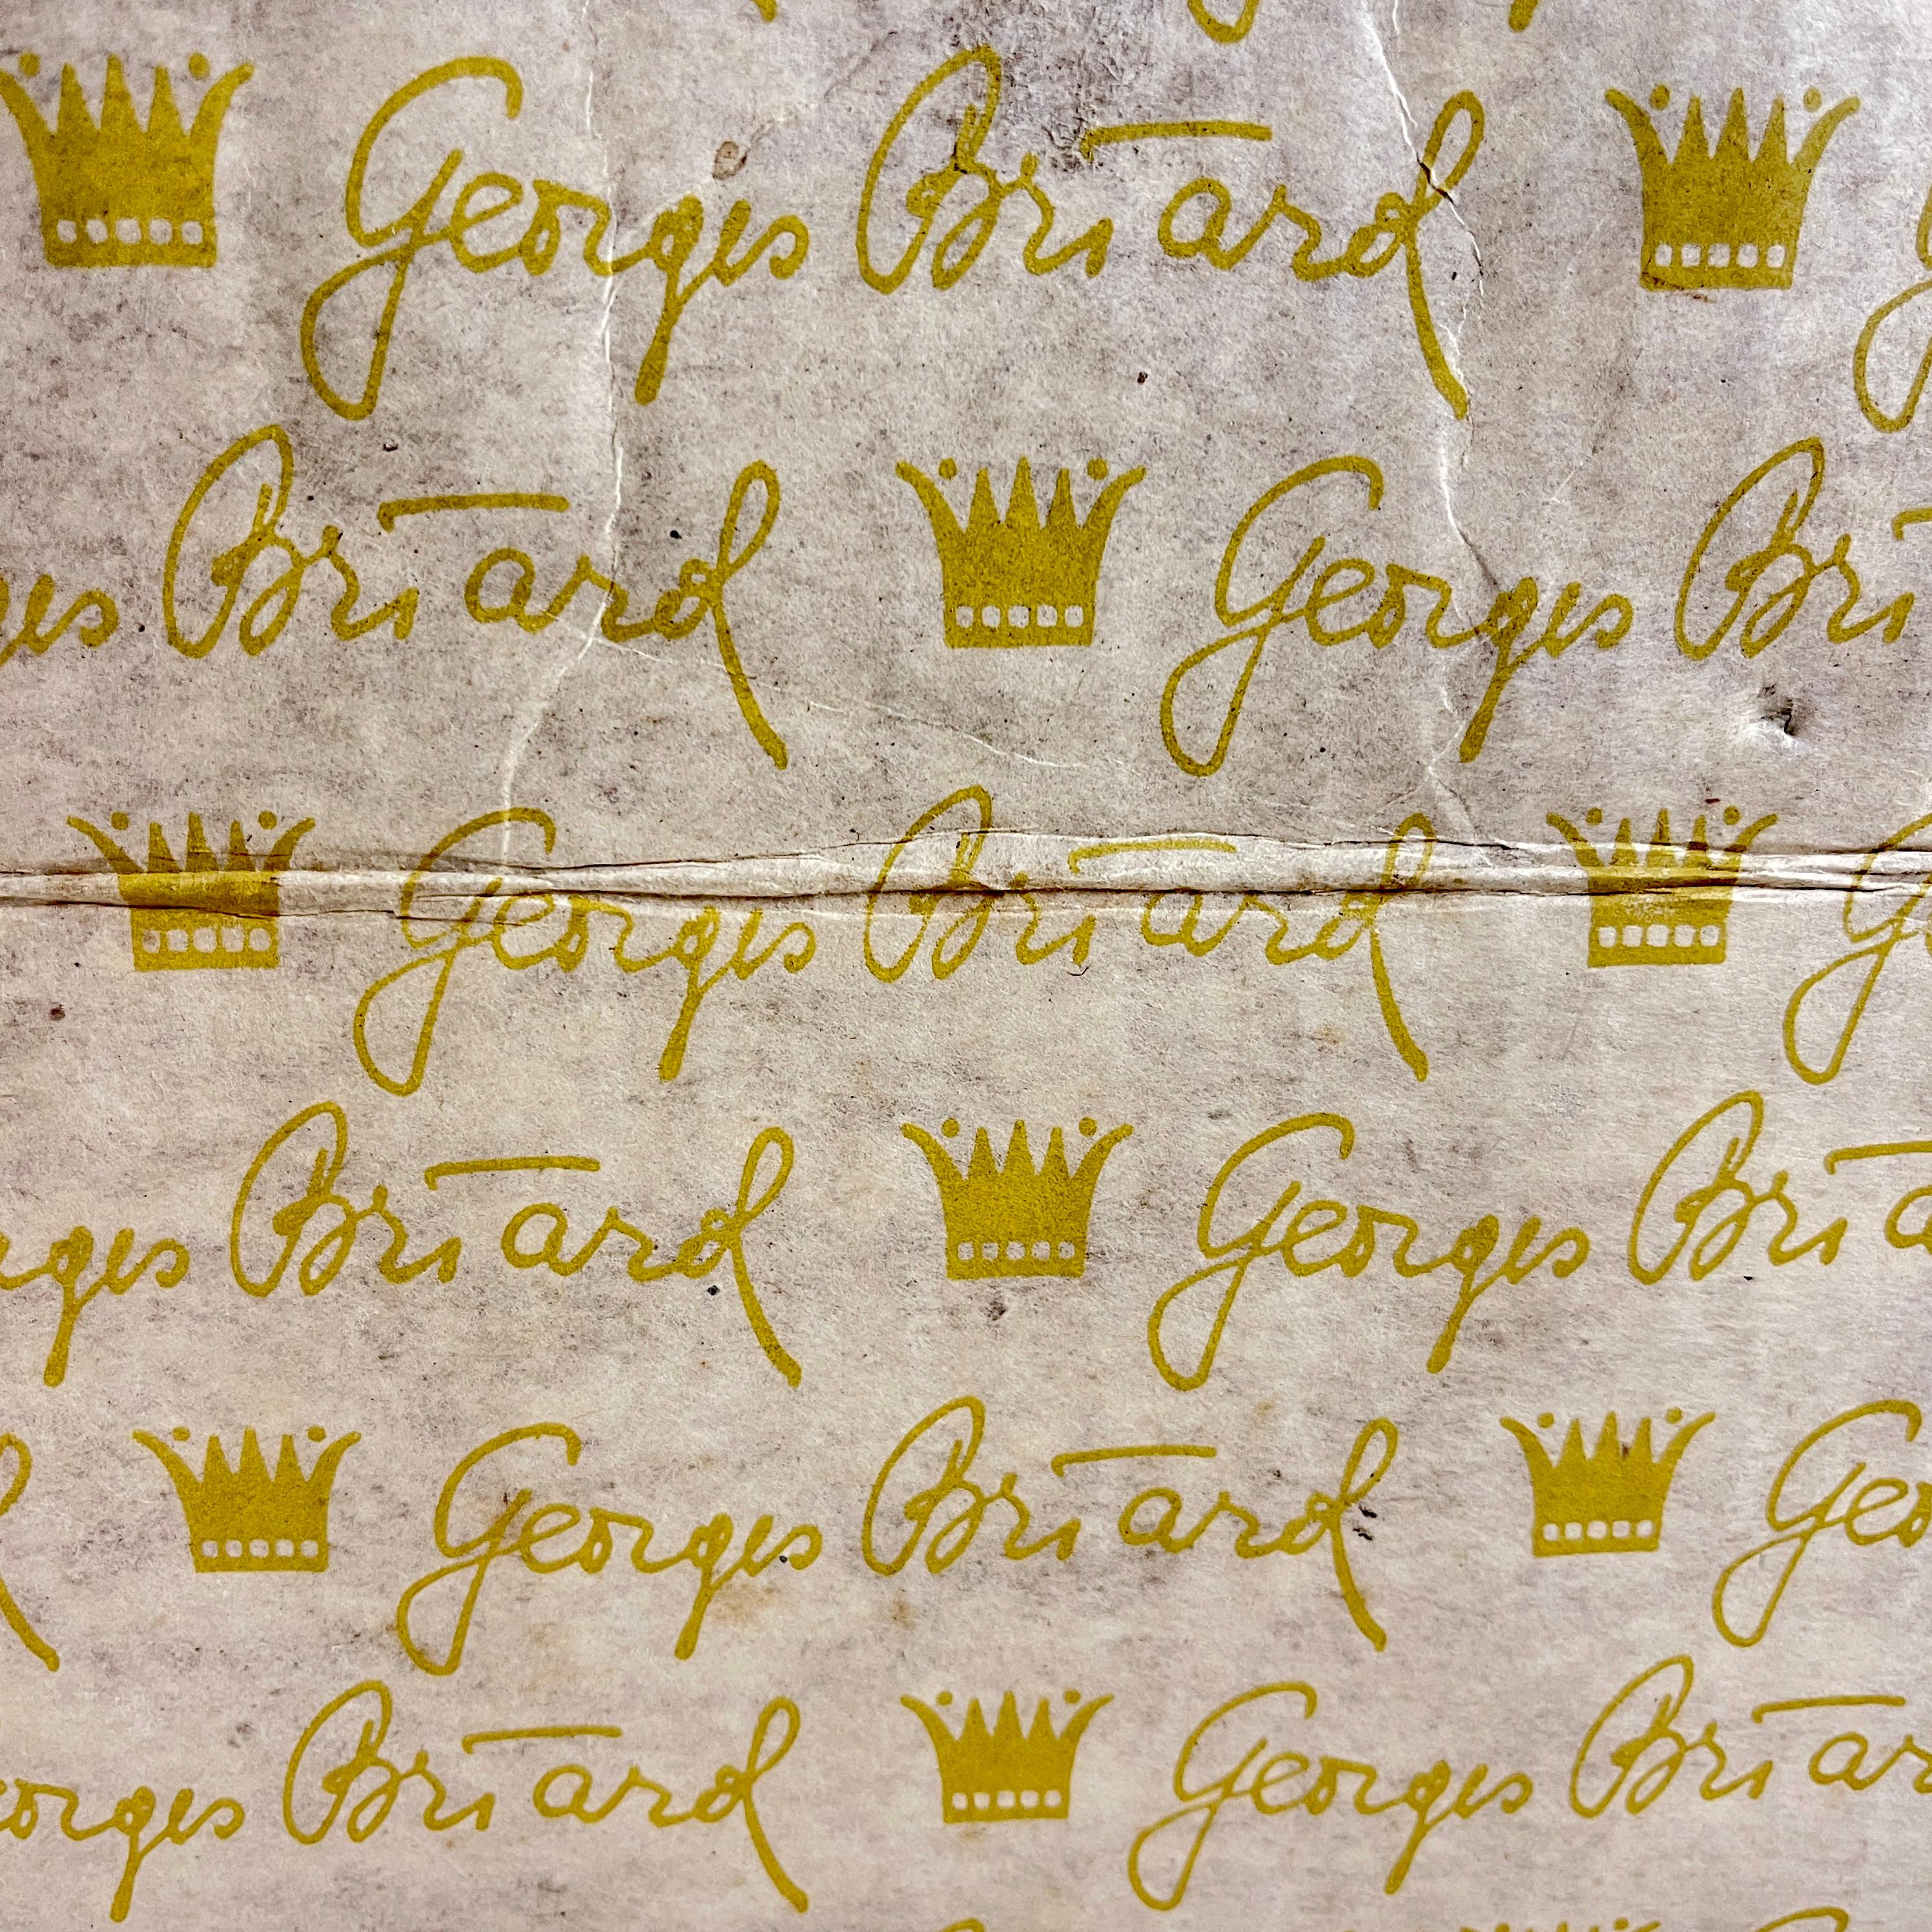 Georges Briard
ges Briard Georges Bri
Georges Briard G
rges Briard Georges Bria
Georges Briard Geo
orges Briard Georges Briar